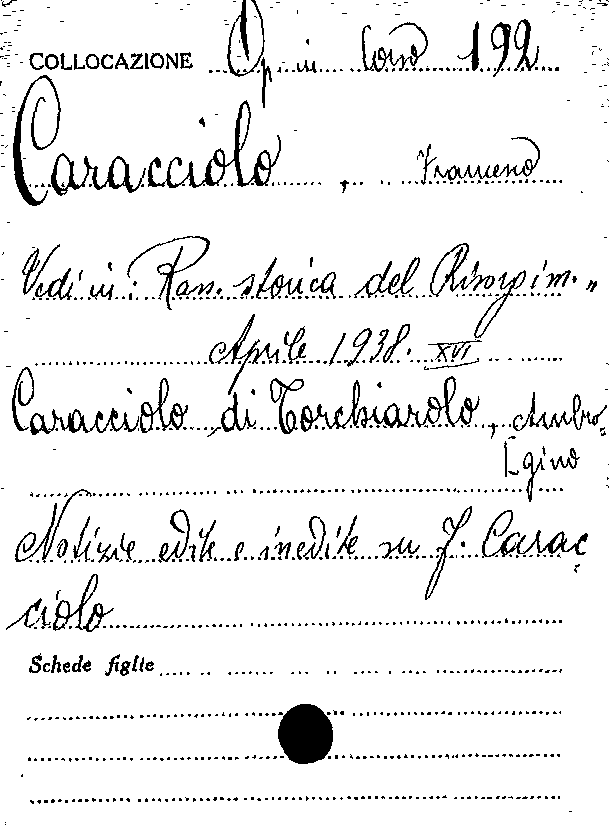 COLLOCAZIONE Op. in Corso 192
Caracciolo, Francesco
Vedi in: Rass. storica del Risorgim. „
Aprile 1938. XVI
Caracciolo di Torchiarolo, Ambro-
gino
Notizie edite e inedite su F. Carac
ciolo
Schede figlie